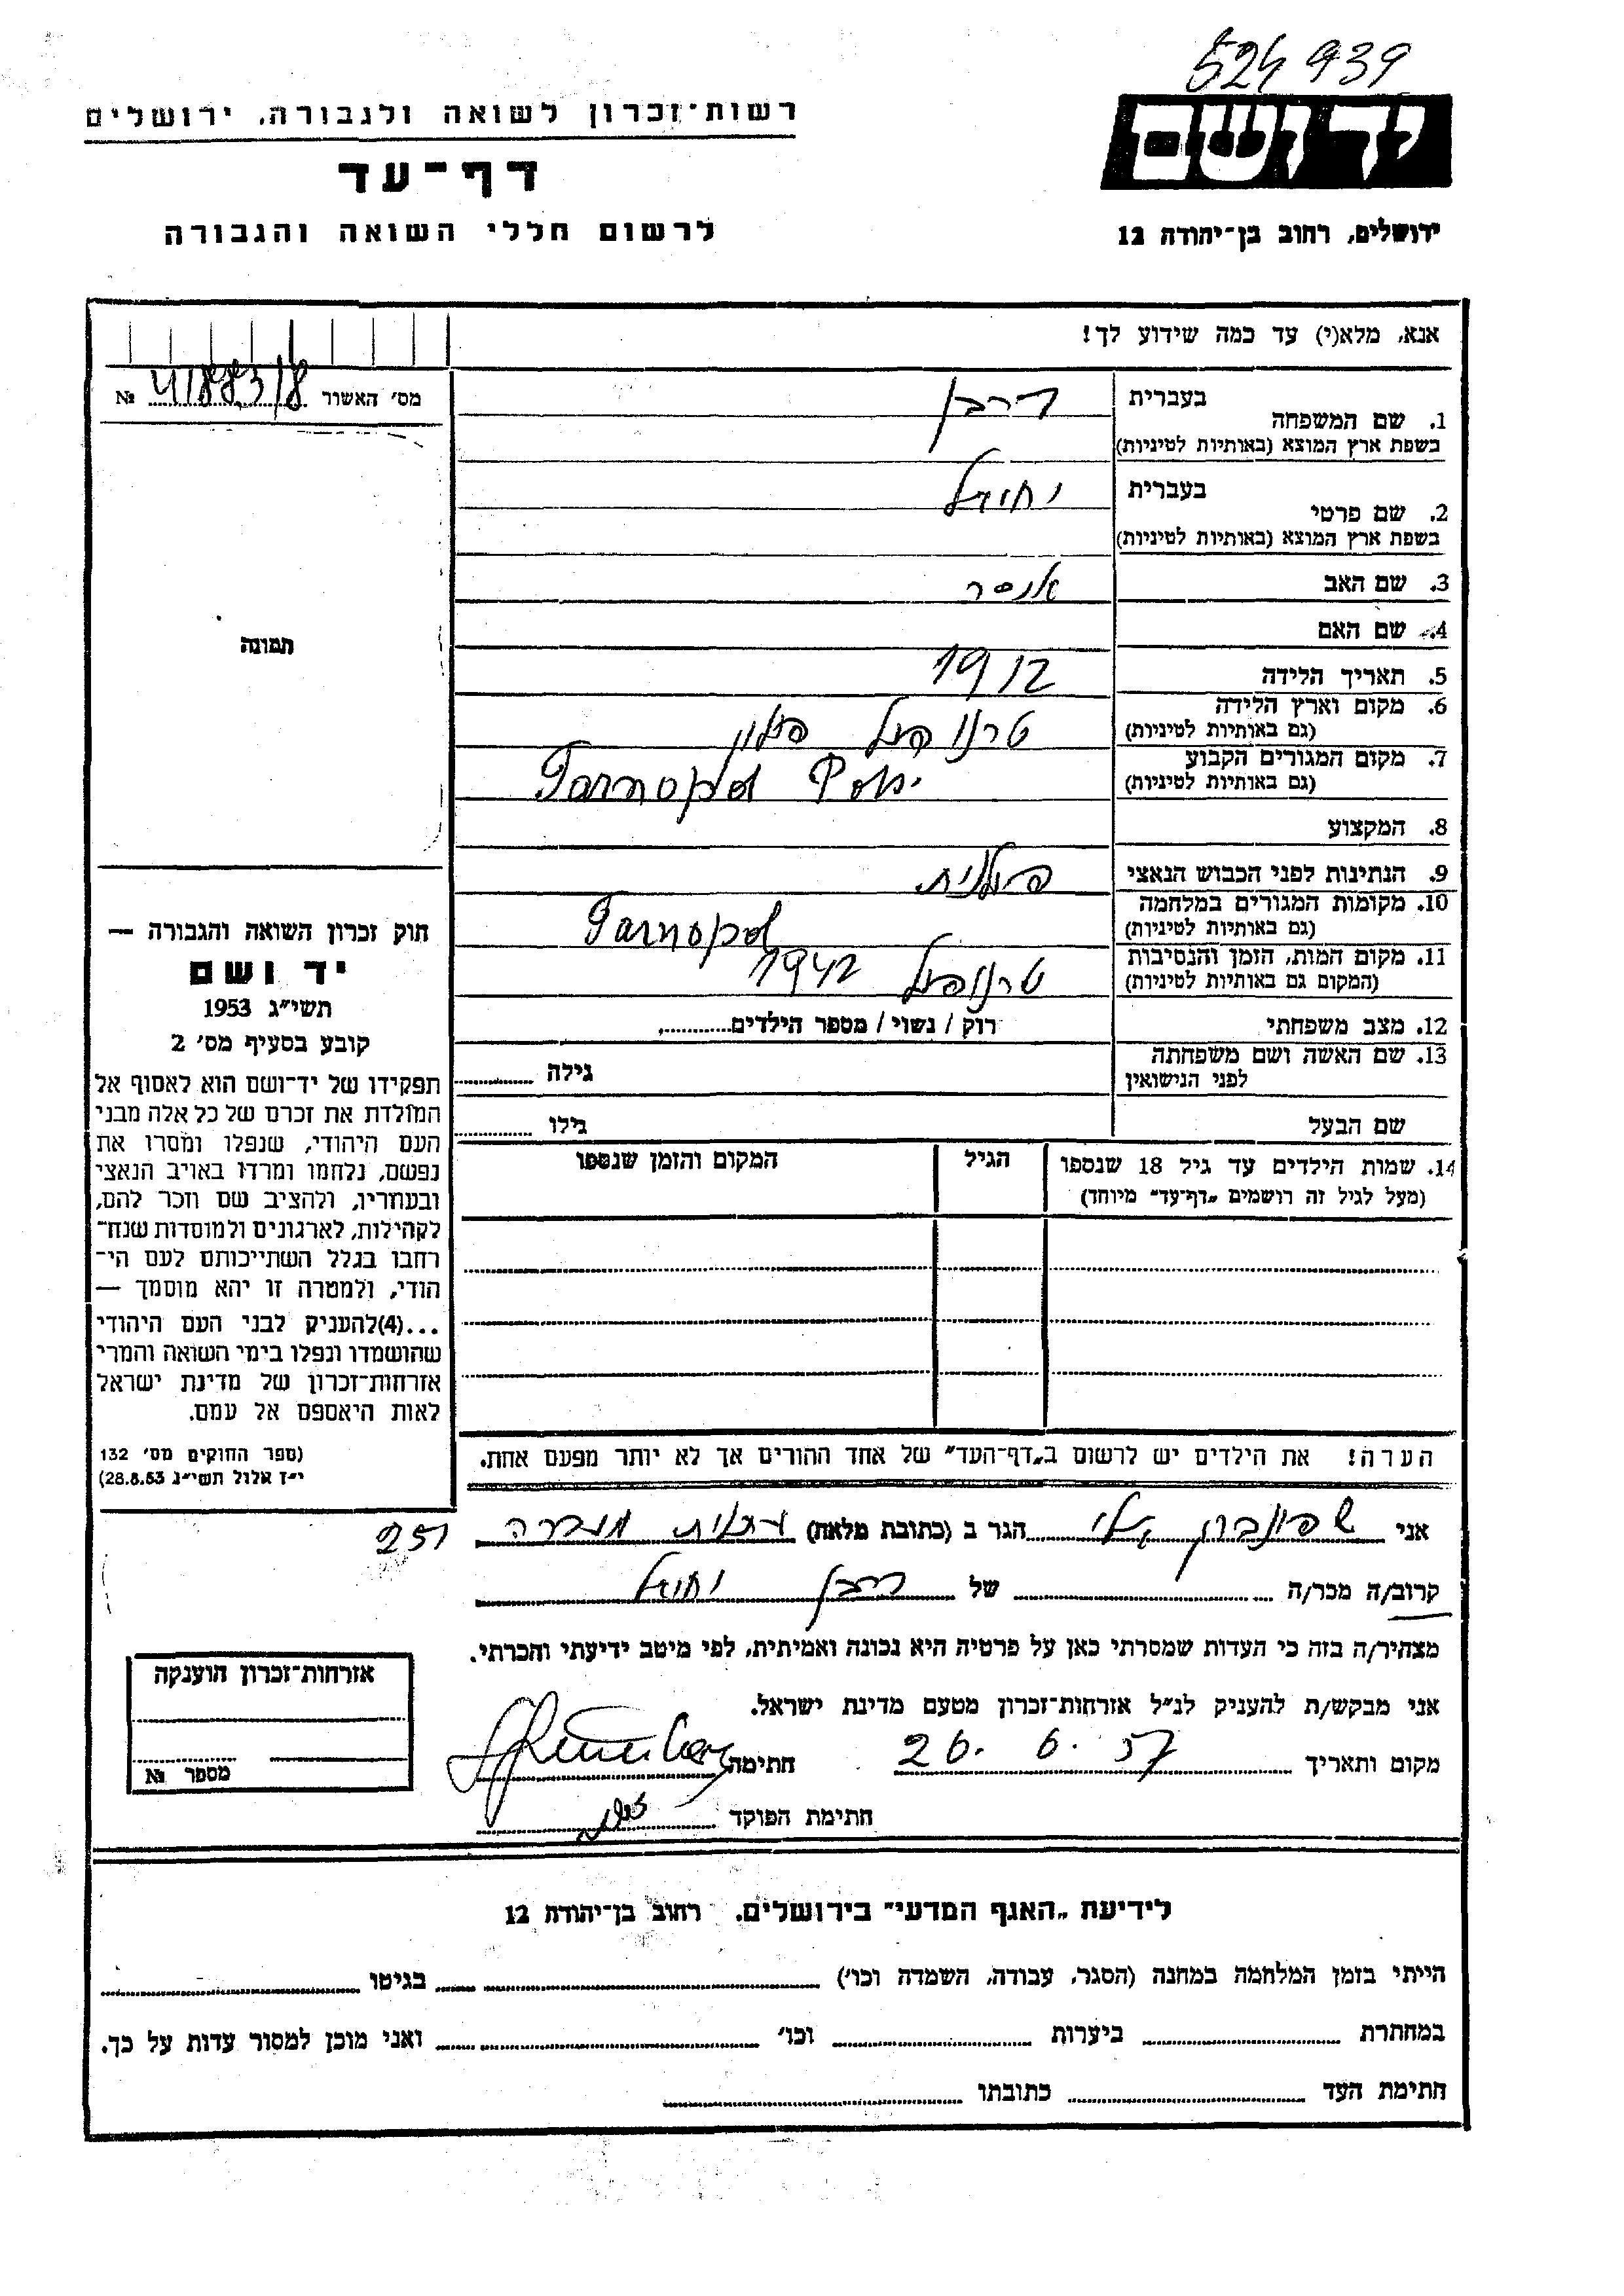 524 939
רשות־זכרון לשואה ולגבורה, ירושלים
יד ושם
דף־עד
לרשום חללי השואה והגבורה
ירושלים, רחוב בן־יהודה 12
אנא, מלא(י) עד כמה שידוע לך!
מס׳ האשור № 41883/8
1. שם המשפחה
בעברית
בשפת ארץ המוצא (באותיות לטיניות)
2. שם פרטי
בעברית יחיאל
בשפת ארץ המוצא (באותיות לטיניות)
3. שם האב
4. שם האם
תמונה
5. תאריך הלידה 1912
6. מקום וארץ הלידה טרנופול פולין
(גם באותיות לטיניות)
7. מקום המגורים הקבוע Tarnopol
(גם באותיות לטיניות)
8. המקצוע
9. הנתינות לפני הכבוש הנאצי פולנית
10. מקומות המגורים במלחמה Tarnopol
(גם באותיות לטיניות)
11. מקום המות, הזמן והנסיבות טרנופול 1942
(המקום גם באותיות לטיניות)
12. מצב משפחתי רוק / נשוי / מספר הילדים
13. שם האשה ושם משפחתה
לפני הנישואין
גילה
שם הבעל גילו
14. שמות הילדים עד גיל 18 שנספו
(מעל לגיל זה רושמים „דף־עד״ מיוחד)
הגיל
המקום והזמן שנספו
חוק זכרון השואה והגבורה —
יד ושם
תשי״ג 1953
קובע בסעיף מס׳ 2
תפקידו של יד־ושם הוא לאסוף אל
המולדת את זכרם של כל אלה מבני
העם היהודי, שנפלו ומסרו את
נפשם, נלחמו ומרדו באויב הנאצי
ובעוזריו, ולהציב שם וזכר להם,
לקהילות, לארגונים ולמוסדות שנח־
רבו בגלל השתייכותם לעם הי־
הודי, ולמטרה זו יהא מוסמך —
...(4)להעניק לבני העם היהודי
שהושמדו ונפלו בימי השואה והמרי
אזרחות־זכרון של מדינת ישראל
לאות היאספם אל עמם.
(ספר החוקים מס׳ 132
י״ז אלול תשי״ג 28.8.53)
הערה! את הילדים יש לרשום ב„דף־העד״ של אחד ההורים אך לא יותר מפעם אחת.
אני הגר ב (כתובת מלאה) 251
קרוב/ה מכר/ה של יחיאל
מצהיר/ה בזה כי העדות שמסרתי כאן על פרטיה היא נכונה ואמיתית, לפי מיטב ידיעתי והכרתי.
אני מבקש/ת להעניק לנ״ל אזרחות־זכרון מטעם מדינת ישראל.
מקום ותאריך 26. 6. 57 חתימה
חתימת הפוקד
אזרחות־זכרון הוענקה
מספר №
לידיעת „האגף המדעי״ בירושלים, רחוב בן־יהודה 12
הייתי בזמן המלחמה במחנה (הסגר, עבודה, השמדה וכו׳) בגיטו
במחתרת ביערות וכו׳ ואני מוכן למסור עדות על כך.
חתימת העד כתובתו